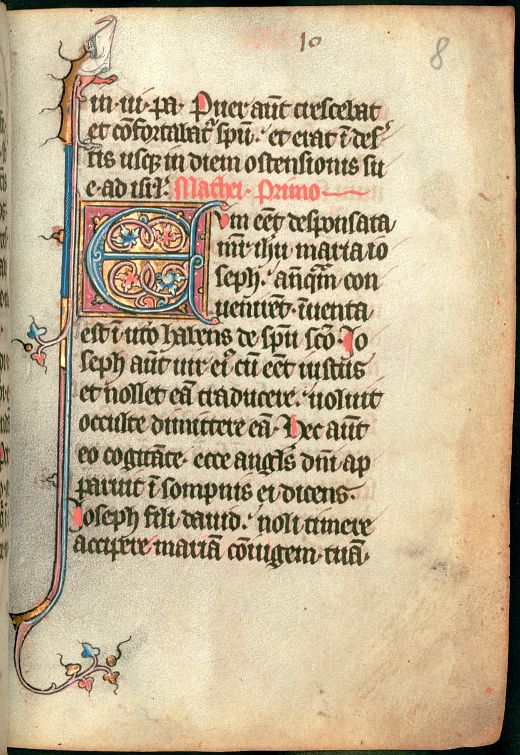 10
8
in·ui·pa· Puer aūt crescebat
et cōfortabat᷑ spū· et erat ī des
tis usq̨ in diem ostensionis su
e·ad isr̄l· Mathei· Primo
Cum eēt desponsata
mr̄ ih̄u maria io
seph· anq̄m con
uenirēt· inuenta
est ī uto habens de spū scō· Io
seph aūt uir ei᷒ cū eēt iustus
et nollet eā traducere· uoluit
occulte dimittere eā· Hec aūt
eo cogitāte· ecce angl̄s dn̄i ap
paruit ī sompnis ei dicens·
Ioseph fili dauid· noli timere
accipere mariā cōiugem·tuā·